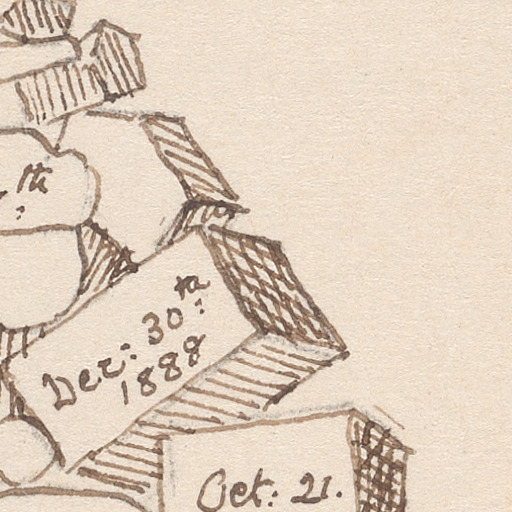 th
Dec: 30th
1888
Oct: 21.